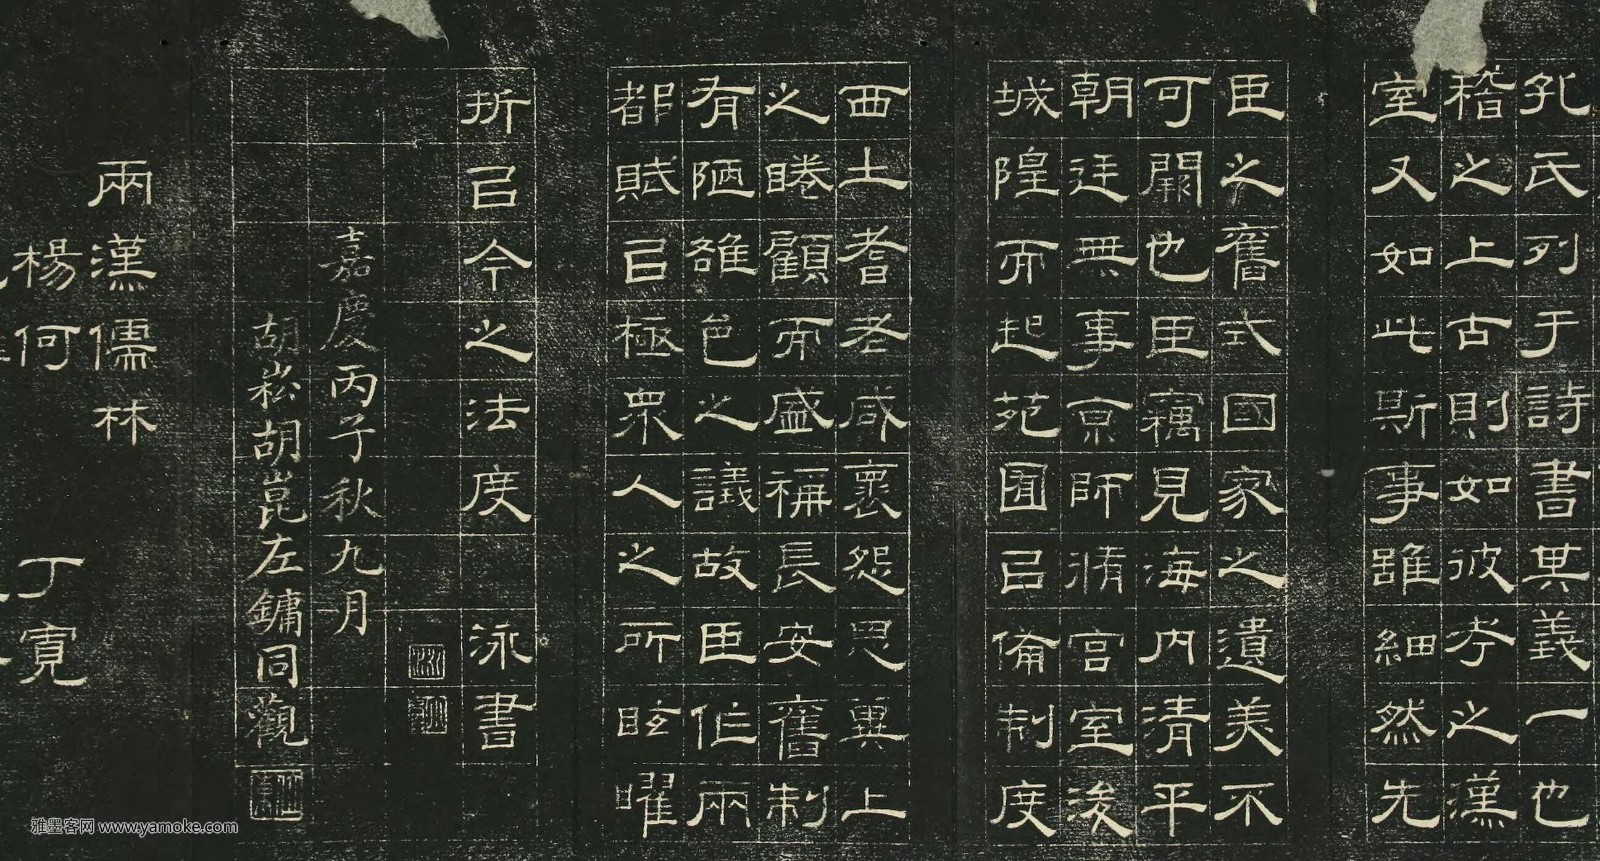 孔氏列于詩書其義一也
稽之上古則如彼考之漢
室又如此斯事雖細然先
臣之舊式國家之遺美不
可闕也臣竊見海内清平
朝廷無事京師脩宮室浚
城隍而起苑囿㠯備制度
西土耆老咸褱怨思冀上
之睠顧而盛稱長安舊制
有陋雒邑之議故臣作兩
都賦㠯極眾人之所眩曜
折㠯今之法度 泳書
嘉慶丙子秋九月
胡崧胡崑左鏞同觀
兩漢儒林
楊何 丁寬
雅墨客网 www.yamoke.com